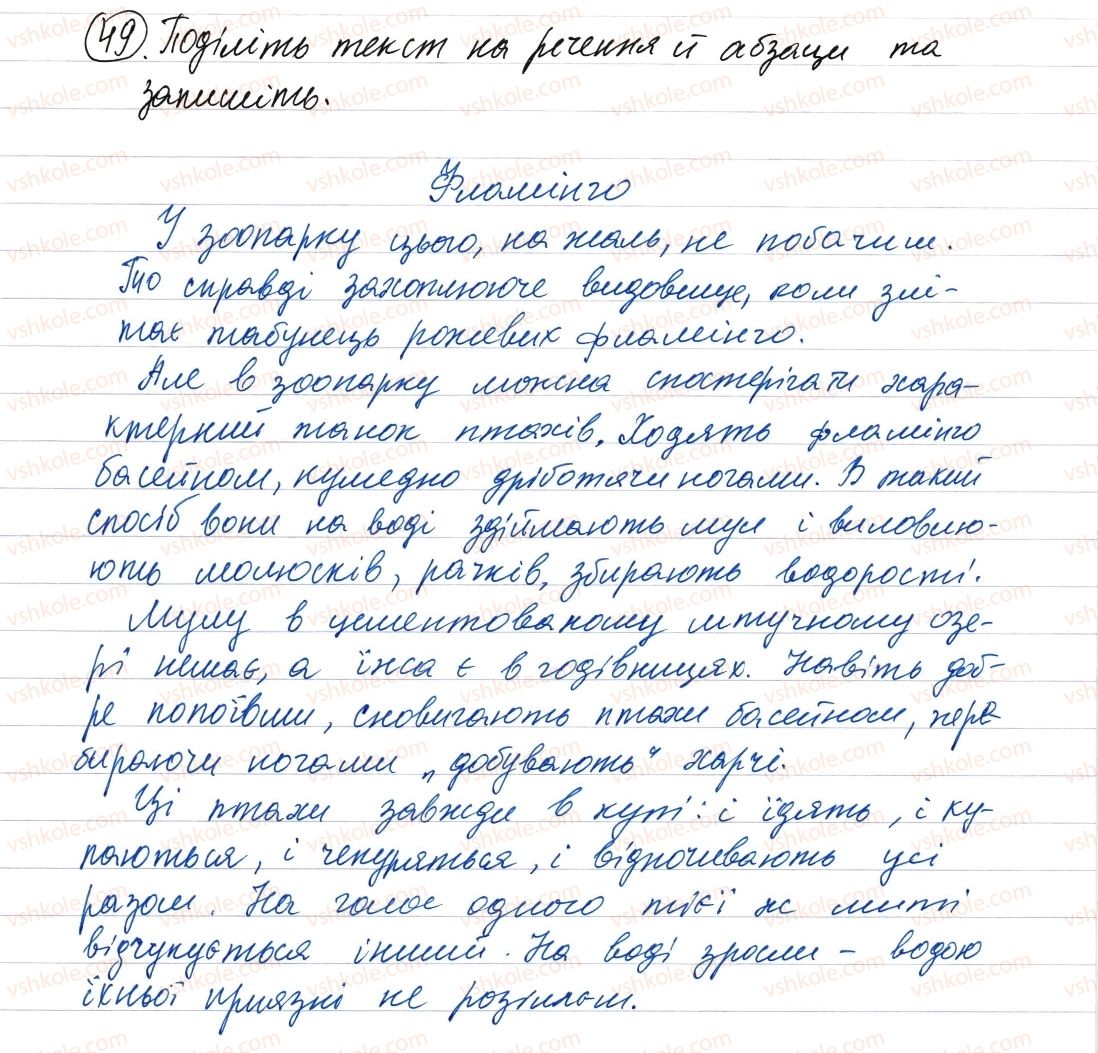 49. Поділіть текст на речення й абзаци та
запишіть.
Фламінго
У зоопарку цього, на жаль, не побачиш.
То справді захоплююче видовище, коли злі-
тає табунець рожевих фламінго.
Але в зоопарку можна спостерігати хара-
ктерний танок птахів. Ходять фламінго
басейном, кумедно дріботячи ногами. В такий
спосіб вони на воді здіймають мул і виловлю-
ють молюсків, рачків, збирають водорості.
Мулу в цементованому штучному озе-
рі немає, а їжа є в годівницях. Навіть доб-
ре попоївши, сновигають птахи басейном, пере-
бираючи ногами „добувають" харчі.
Ці птахи завжди в купі: і їдять, і ку-
паються, і чепуряться, і відпочивають усі
разом. На голос одного тієї ж миті
відгукується інший. На воді зросли - водою
їхньої приязні не розіллєш.